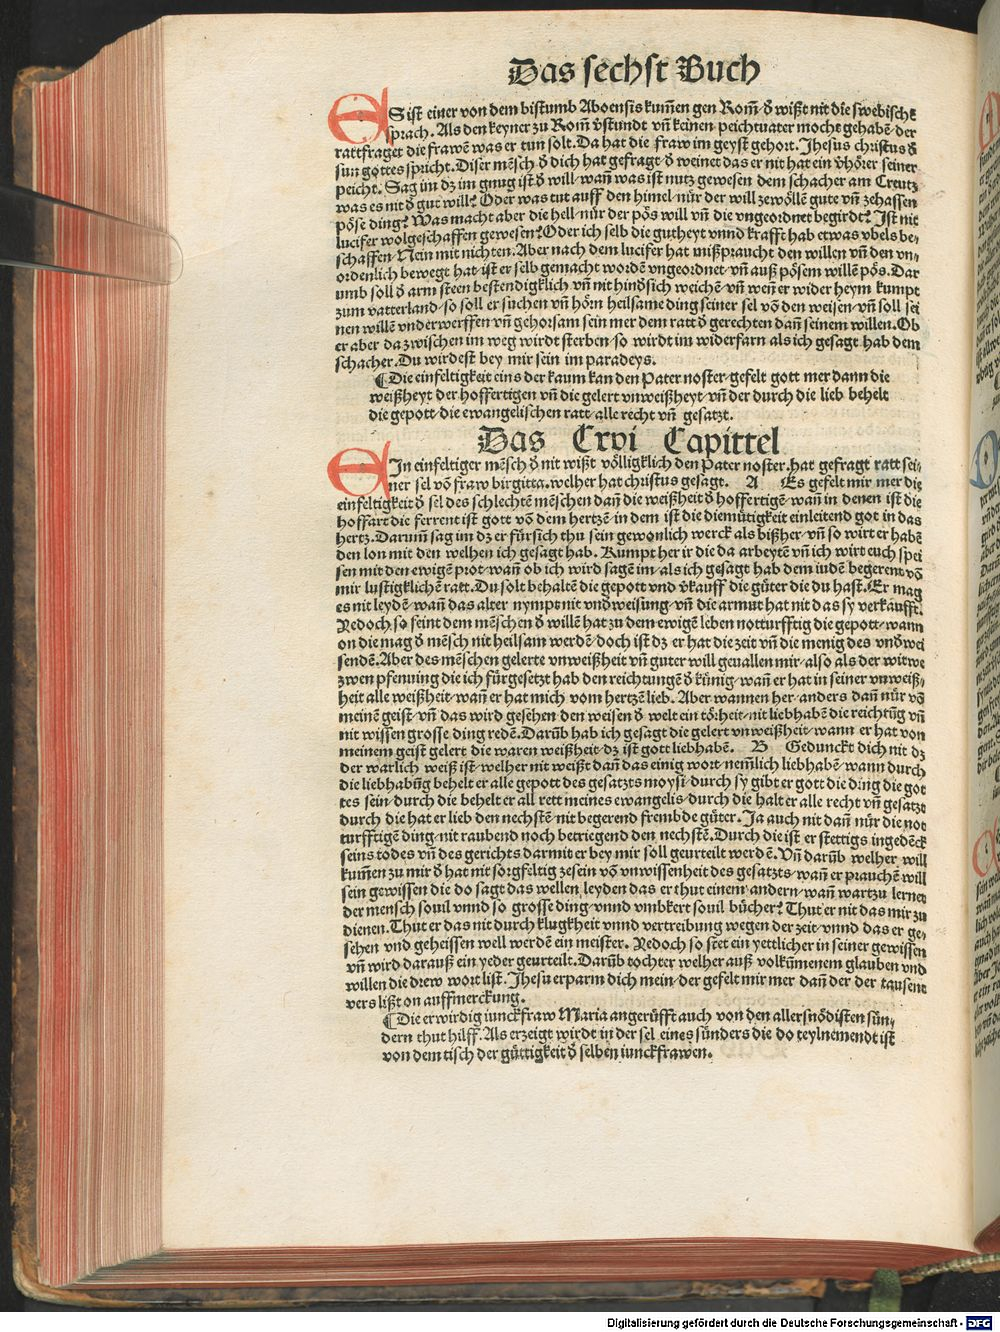 Das sechst Buch
ES ist einer von dem bistumb Aboensis kum̄en gen Rom̄ ð wißt nit die swebische
sprach. Als den keyner zu Rom̄ v̄stundt vn̄ keinen peichtuater mocht gehabē der
rattfraget die frawē was er tun solt. Da hat die fraw im geyst gehort. Ihesus christus ð
sun gottes spricht. Diser mēsch ð dich hat gefragt ð weinet das er nit hat ein v̄hörer seiner
peicht. Sag im dz im gnug ist ð will/wan̄ was ist nutz gewesen dem schacher am Creutz
was es nit ð gut will? Oder was tut auff den himel/nür der will zewöllē gute vn̄ zehassen
pöse ding? Was macht aber die hell/nür der pös will vn̄ die vngeordnet begirdt? Ist nit
lucifer wolgeschaffen gewesen? Oder ich selb die gutheyt vnnd krafft hab etwas vbels be⸗
schaffen/Nein mit nichten. Aber nach dem lucifer hat mißpraucht den willen vn̄ den vn⸗
ordenlich bewegt hat/ist er selb gemacht wordē vngeordnet/vn̄ auß pösem willē pös. Dar
umb soll ð arm steen bestendigklich vn̄ nit hindsich weichē/vn̄ wen̄ er wider heym kumpt
zum vatterland/so soll er suchen vn̄ hörn heilsame ding seiner sel vō den weisen/vn̄ soll sei
nen willē vnderwerffen vn̄ gehorsam sein mer dem ratt ð gerechten dan̄ seinem willen. Ob
er aber da zwischen im weg wirdt sterben/so wirdt im widerfarn als ich gesagt hab dem
schacher. Du wirdest bey mir sein im paradeys.
¶ Die einfeltigkeit eins der kaum kan den Pater noster/gefelt gott mer dann die
weißheyt der hoffertigen vn̄ die gelert vnweißheyt/vn̄ der durch die lieb behelt
die gepott/die ewangelischen ratt/alle recht vn̄ gesatzt.
Das Crvi Capittel
EIn einfeltiger mēsch ð nit wißt völligklich den Pater noster/hat gefragt ratt sei⸗
ner sel vō fraw birgitta/welher hat christus gesagt. A Es gefelt mir mer die
einfeltigkeit ð sel des schlechtē mēschen dan̄ die weißheit ð hoffertigē/wan̄ in denen ist die
hoffart die ferrent ist gott vō dem hertzē/in dem ist die diemütigkeit einleitend got in das
hertz. Darum̄ sag im dz er fürsich thu sein gewonlich werck als bißher/vn̄ so wirt er habē
den lon mit den welhen ich gesagt hab. Kumpt her ir die da arbeytē vn̄ ich wirt euch spei
sen mit den ewigē prot/wan̄ ob ich wird sagē im/als ich gesagt hab dem iudē begerent vō
mir lustigklichē ratt. Du solt behaltē die gepott vnd v̄kauff die güter die du hast. Er mag
es nit leydē/wan̄ das alter nympt nit vndweisung/vn̄ die armut hat nit das sy verkaufft.
Yedoch so seint dem mēschen ð willē hat zu dem ewigē leben notturfftig die gepott/wann
on die mag ð mēsch nit heilsam werdē/doch ist dz er hat die zeit vn̄ die menig des vndwei
sendē. Aber des mēschen gelerte vnweißheit vn̄ guter will geuallen mir/also als der witwe
zwen pfenning die ich fürgesetzt hab den reichtungē ð künig/wan̄ er hat in seiner vnweiß⸗
heit alle weißheit/wan̄ er hat mich vom hertzē lieb. Aber wannen her/anders dan̄ nür vō
meinē geist/vn̄ das wird gesehen den weisen ð welt ein törheit/nit liebhabē die reichtūg vn̄
nit wissen grosse ding redē. Darūb hab ich gesagt die gelert vnweißheit/wann er hat von
meinem geist gelert die waren weißheit/dz ist gott liebhabē. B Gedunckt dich nit dz
der warlich weiß ist/welher nit weißt dan̄ das einig wort/nem̄lich liebhabē/wann durch
die liebhabūg behelt er alle gepott des gesatzts moysi/durch sy gibt er gott die ding die got
tes sein/durch die behelt er all rett meines ewangelis/durch die halt er alle recht vn̄ gesatzt
durch die hat er lieb den nechstē/nit begerend frembde güter. Ja auch nit dan̄ nür die not
turfftigē ding/nit raubend noch betriegend den nechstē. Durch die ist er stettigs ingedēck
seins todes vn̄ des gerichts darmit er bey mir soll geurteilt werdē. Vn̄ darūb welher will
kum̄en zu mir ð hat nit sorgfeltig zesein vō vnwissenheit des gesatzts/wan̄ er prauchē will
sein gewissen die do sagt das wellen leyden das er thut einem andern/wan̄ wartzu lernet
der mensch souil vnnd so grosse ding/vnnd vmbkert souil bücher? Thut er nit das mir zu
dienen. Thut er das nit durch klugkheit vnnd vertreibung wegen der zeit/vnnd das er ge⸗
sehen vnd geheissen well werdē ein meister. Yedoch so stet ein yettlicher in seiner gewissen
vn̄ wird darauß ein yeder geurteilt. Darūb tochter welher auß volkūmenem glauben vnd
willen die drew wort list. Ihesu erparm dich mein/der gefelt mir mer dan̄ der der tausent
vers lißt on auffmerckung.
¶ Die erwirdig iunckfraw Maria angerüfft auch von den allersnödisten sün⸗
dern thut hilff. Als erzeigt wirdt in der sel eines sünders die do teylnemendt ist
von dem tisch der güttigkeit ð selben iunckfrawen.
Digitalisierung gefördert durch die Deutsche Forschungsgemeinschaft - DFG